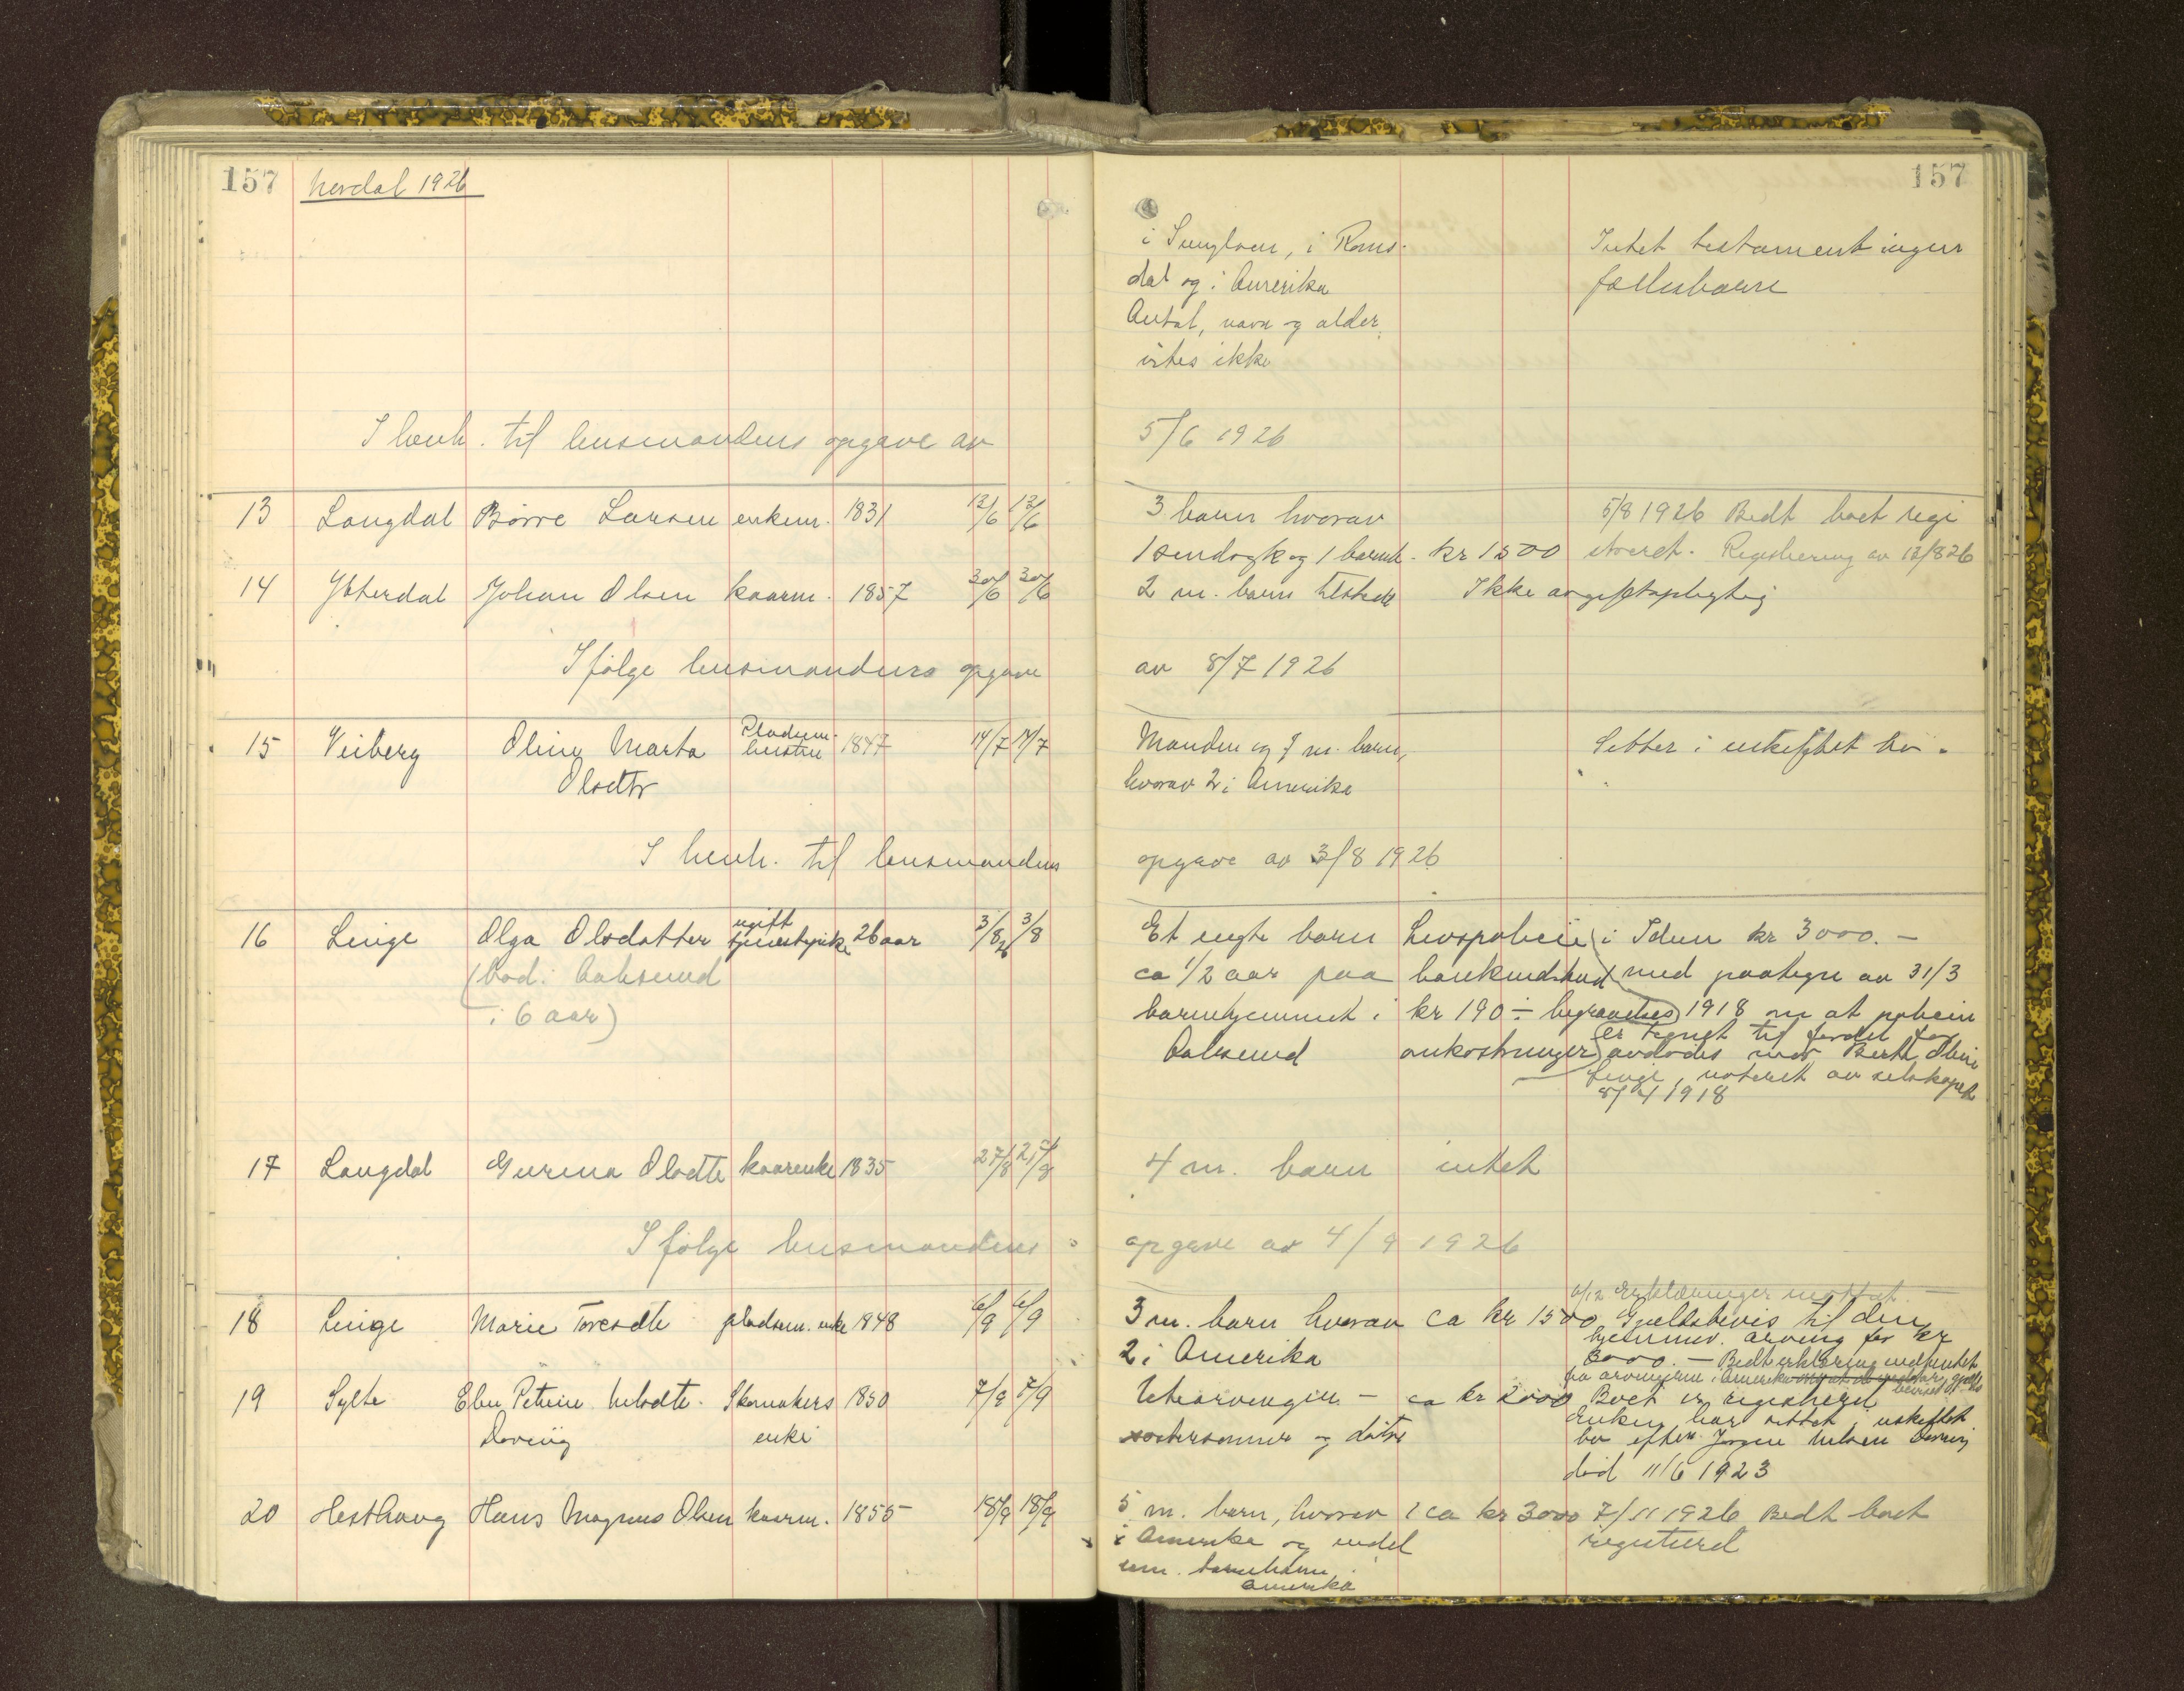 157 Nordal 1926
157
i Sunylven, i Roms-
dal og i Amerika
Antal, navn og alder
vites ikke
Intet testament ingen
fællesbarn
I henh. til lensmandens opgave av 5/6 1926
13 Langdal Börre Larsen enkem. 1831 12/6 12/6 3 barn hvorav
1 sindsyk og 1 barnb. kr 1500
5/8 1926 Bedt boet regi
streret. Registrering av 12/8 26
14 Ytterdal Johan Olsen kaarm. 1857 30/6 30/6 2 m. barn tilstede Ikke avgiftspligtig
Ifølge lensmandens opgave av 8/7 1926
15 Veiberg Oline Marta Pladsm. 1847 14/7 14/7 Manden og 7 m. barn,
Olsdtr hustru hvorav 2 i Amerika
Sitter i uskiftet bo.
I henh. til lensmandens opgave av 3/8 1926
16 Linge Olga Olsdatter ugift tjenestepike 26 aar 3/8 26 3/8
(bod. i Aalesund
i 6 aar)
Et uegte barn
ca 1/2 aar paa
barnehjemmet i
Aalesund
Livspolicie i Idun kr 3000.-
bankindskud med paategn av 31/3
kr 190 ÷ begravelses 1918 om at policen
omkostninger er tegnet til fordel for
avdødes mor Berte Oline
Linge, noteret av selskapet
8/4 1918
17 Langdal Gurina Olsdtr kaarenke 1835 27/8 27/8 4 m. barn intet
Ifølge lensmandens opgave av 4/9 1926
18 Linge Marie Toresdtr pladsm. enke 1848 6/9 6/9 3 m. barn hvorav ca kr 1500
2 i Amerika
6/12 Erklæringer mottat.
Gjeldsbevis til den
hjemmev. arving for kr
3000.- Bedt erklæring indhentet
fra arvingerne i Amerika
19 Sylte Elen Petrine Nilsdtr. Skomakers 1850 7/9 7/9 Utearvinger - ca kr 2000
Døving enke søstersønner og døtre
Boet er registrert
Enken har sittet i uskiftet
bo efter Jørgen Nilsen Døving
død 11/6 1923
20 Hesthaug Hans Magnus Olsen kaarm. 1855 18/9 18/9 5 m. barn, hvorav 2 ca kr 3000
i Amerika og endel
um. barnebarn i
Amerika
7/11 1926 Bedt boet
registrerd